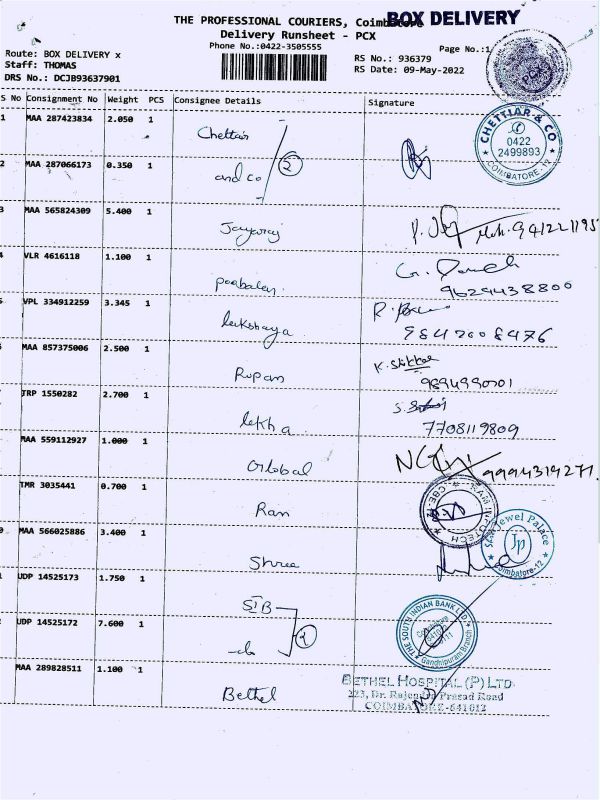 THE PROFESSIONAL COURIERS, Coimbatore
BOX DELIVERY
Delivery Runsheet - PCX
Phone No.:0422-3505555
Page No.:1
Route: BOX DELIVERY x
Staff: THOMAS
DRS No.: DCJB93637901
RS No.: 936379
RS Date: 09-May-2022
PCX
S No Consignment No Weight PCS Consignee Details Signature
CHETTIAR & CO
0422
2499893
COIMBATORE-12
1 MAA 287423834 2.050 1 Chettiar
2 MAA 287066173 0.350 1 and co 2
3 MAA 565824309 5.400 1 Jayaraj
4 VLR 4616118 1.100 1
9629438800
5 VPL 334912259 3.345 1 lakshaya
9842008476
MAA 857375006 2.500 1 Rupam
TRP 1550282 2.700 1 lekha
7708119809
MAA 559112927 1.000 1 Global
9994319277
TMR 3035441 0.700 1 Ram
RAM INFOTECH
CBE-12
0 MAA 566025886 3.400 1 Shree
Jewel Palace
JP
Coimbatore-12
1 UDP 14525173 1.750 1 SIB
2 UDP 14525172 7.600 1 -do- 2
THE SOUTH INDIAN BANK LTD.
Coimbatore
Gandhipuram Branch
MAA 289828511 1.100 1 Bethel
BETHEL HOSPITAL (P) LTD
223, Dr. Rajendra Prasad Road
COIMBATORE-641012